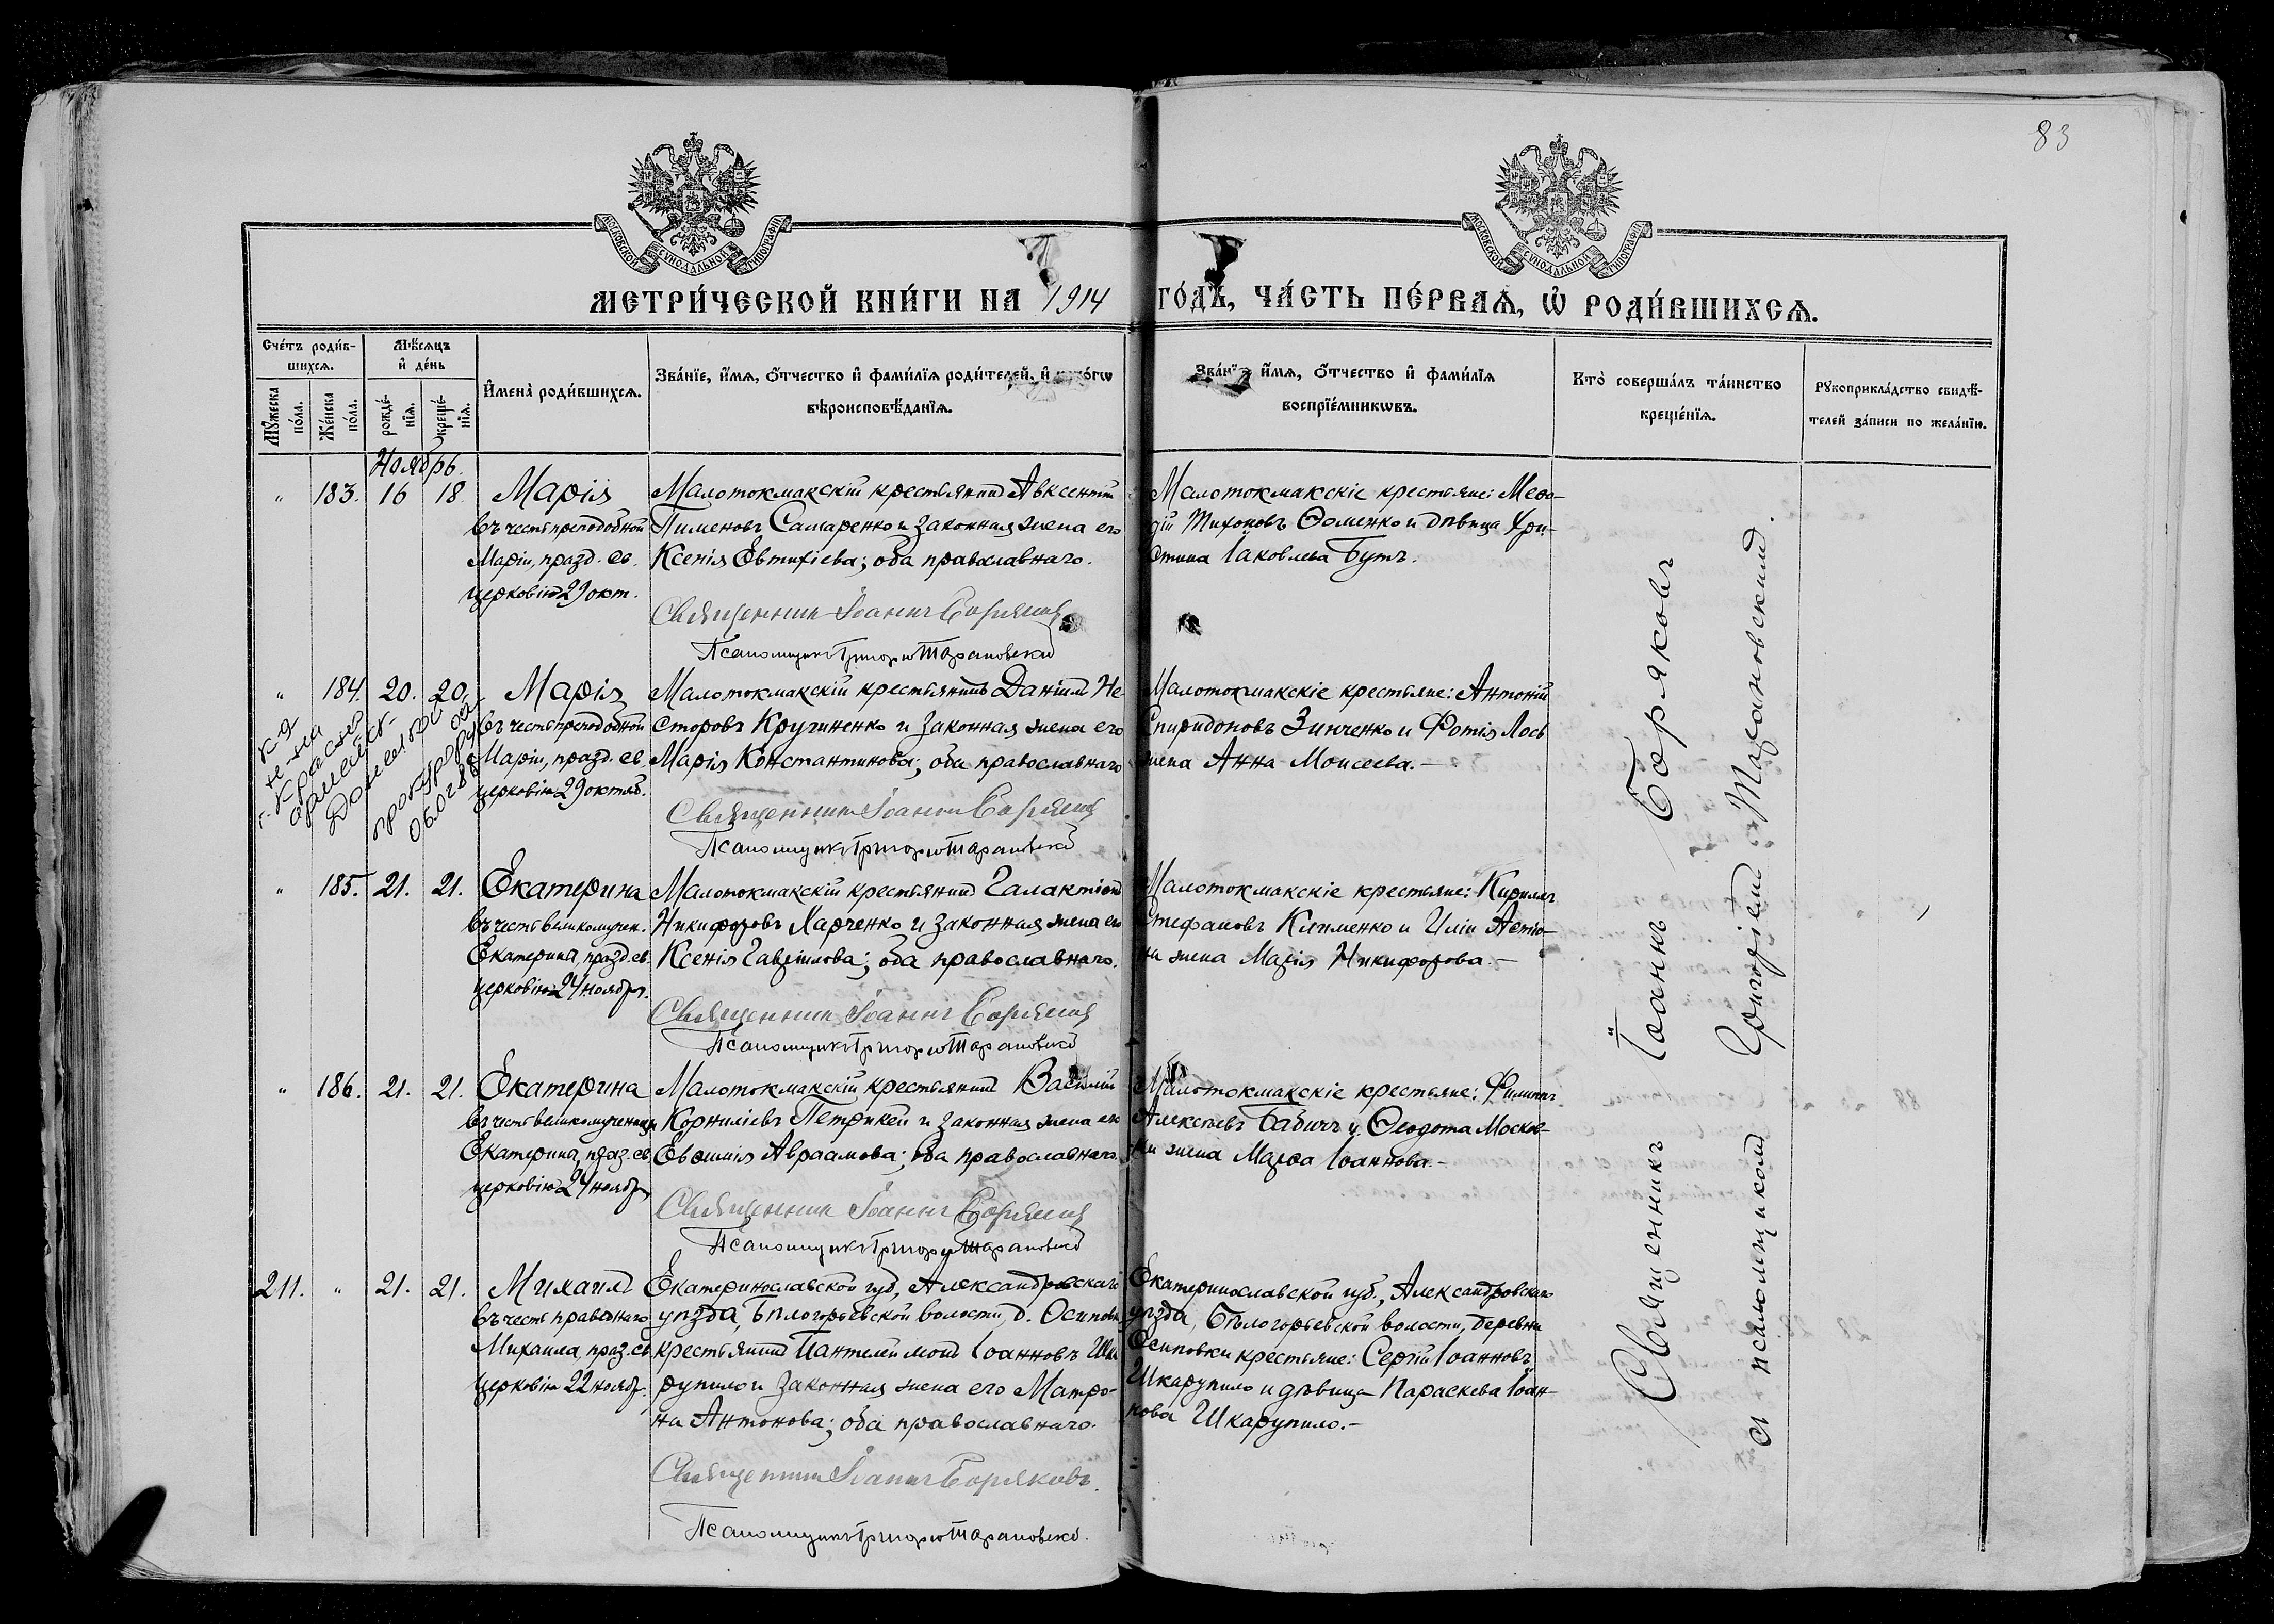 83
МОСКОВСКОЙ СУНОДАЛЬНОЙ ТИПОГРАФІИ
МОСКОВСКОЙ СУНОДАЛЬНОЙ ТИПОГРАФІИ
МЕТРИ́ЧЕСКОЙ КНИ́ГИ НА 1914 ГО́ДЪ, ЧА́СТЬ ПЕ́РВАѦ, Ѡ҆ РОДИ́ВШИХСѦ.
Сче́тъ роди́в-
шихсѧ.
Мꙋ́жеска
по́ла.
Же́нска
по́ла.
Мѣ́сѧцъ
и҆ де́нь
рожде́-
нїѧ.
креще́-
нїѧ.
И҆мена̀ роди́вшихсѧ.
Зва́нїе, и҆́мѧ, о҆́тчество и҆ фами́лїѧ роди́телей, и҆ како́гѡ
вѣроисповѣ́данїѧ.
Зва́нїе, и҆́мѧ, о҆́тчество и҆ фами́лїѧ
воспрїе́мникѡвъ.
Кто̀ соверша́лъ та́инство
креще́нїѧ.
Рꙋкоприкла́дство свидѣ́-
телей за́писи по жела́нїю.
Ноябрь.
" 183. 16 18. Марія
въ честь преподобной
Маріи, празд. св.
церковію 29 окт.
Малотокмакскій крестьянинъ Авксентій
Пименовъ Самаренко и законная жена его
Ксенія Евтихіева; оба православнаго.
Священникъ Іоаннъ Боряковъ
Псаломщикъ Григорій Тарановскій
Малотокмакскіе крестьяне: Меѳо-
дій Тихоновъ Ѳоменко и дѣвица Хри-
стина Іаковлева Бутъ.
" 184. 20. 20. Марія
въ честь преподобной
Маріи, празд. св.
церковію 29 октяб.
г. Красно
армейск
Донецкой
прокурору
Малотокмакскій крестьянинъ Даніилъ Не
сторовъ Кручиненко и законная жена его
Марія Константинова; оба православнаго
Священникъ Іоаннъ Боряковъ
Псаломщикъ Григорій Тарановскій
Малотокмакскіе крестьяне: Антоній
Спиридоновъ Зинченко и Фотія Лось
жена Анна Моисеева.–
" 185. 21. 21. Екатерина
въ честь великомучен.
Екатерины, празд. св.
церковію 24 ноября.
Малотокмакскій крестьянинъ Галактіонъ
Никифоровъ Харченко и законная жена его
Ксенія Гавріилова; оба православнаго.
Священникъ Іоаннъ Боряковъ
Псаломщикъ Григорій Тарановскій
Малотокмакскіе крестьяне: Кириллъ
Стефановъ Клименко и Иліи
жена Марія Никифорова.–
" 186. 21. 21. Екатерина
въ честь великомученицы
Екатерины, праз. св.
церковію 24 ноябр.
Малотокмакскій крестьянинъ Василій
Корниліевъ Петрикей и законная жена его
Евѳимія Авраамова; оба православнаго.
Священникъ Іоаннъ Боряковъ
Псаломщикъ Григорій Тарановскій
Малотокмакскіе крестьяне: Филиппъ
Алексѣевъ Бабичъ и Ѳеодота Москов-
ки жена Марѳа Іоаннова.–
211. " 21. 21. Михаилъ
въ честь праведнаго
Михаила, праз. св.
церковію 22 ноябр.
Екатеринославской губ, Александровскаго
уѣзда, Бѣлогорьевской волости, д. Осиповки
крестьянинъ Пантелеимонъ Іоанновъ Шка
рупило и законная жена его Матро-
на Антонова; оба православнаго.
Священникъ Іоаннъ Боряковъ.
Псаломщикъ Григорій Тарановскій.
Екатеринославской губ., Александровскаго
уѣзда, Бѣлогорьевской волости, деревни
Осиповки крестьяне: Сергій Іоанновъ
Шкарупило и дѣвица Параскева Іоан-
нова Шкарупило.–
Священникъ Іоаннъ Боряковъ
съ псаломщикомъ Григоріемъ Тарановскимъ.